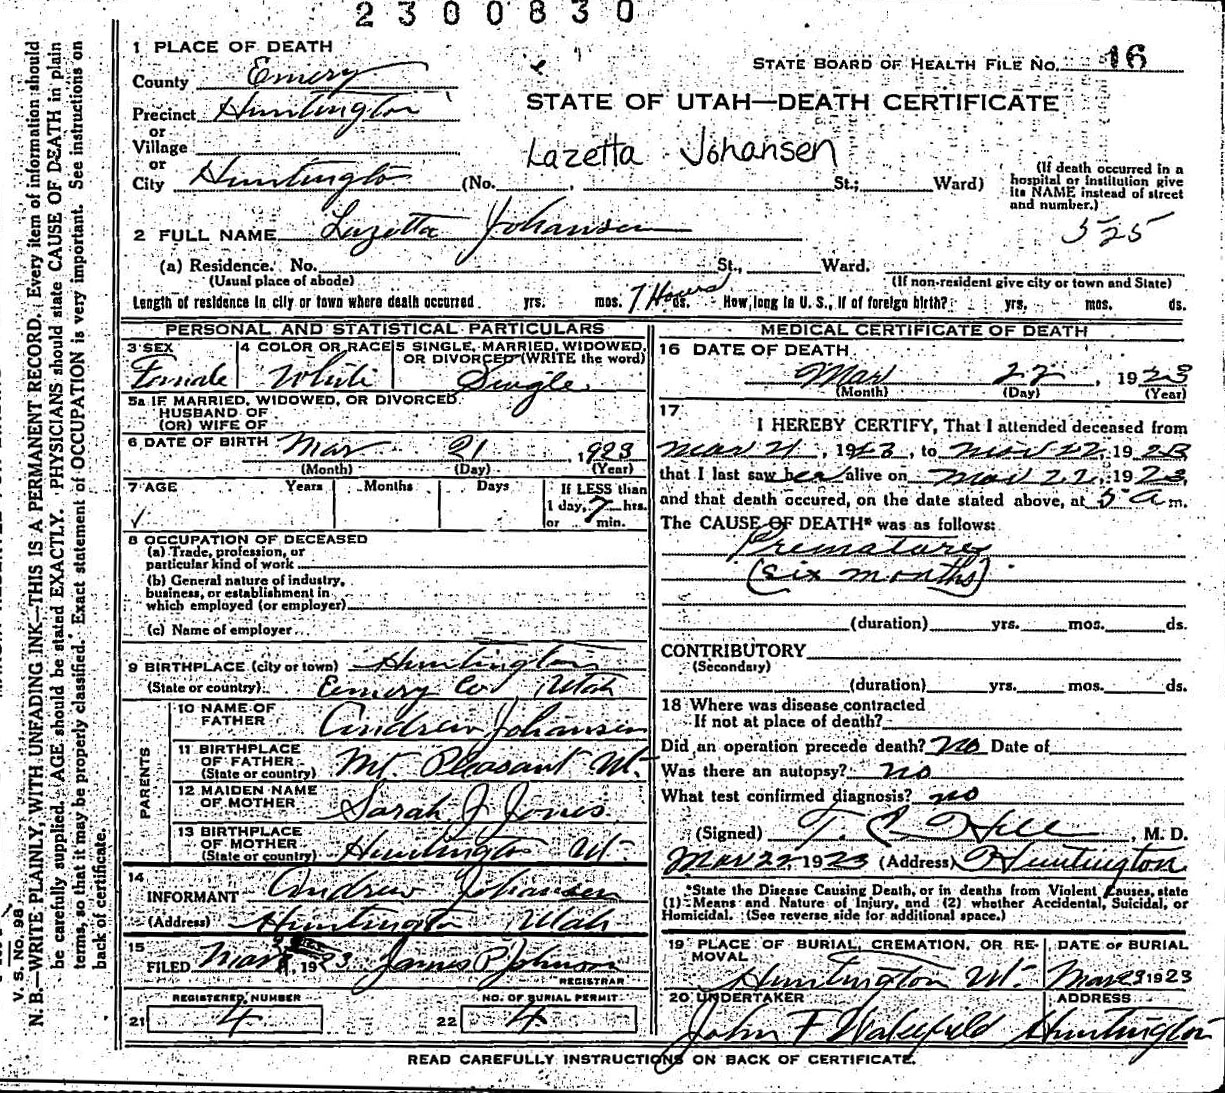 2300830
1 PLACE OF DEATH
STATE BOARD OF HEALTH FILE No. 16
County Emery
STATE OF UTAH—DEATH CERTIFICATE
Precinct Huntington
or
Village
or
Lazetta Johansen
City Huntington (No. , St.; Ward)
(If death occurred in a hospital or institution give its NAME instead of street and number.)
2 FULL NAME Lazetta Johansen
525
(a) Residence. No. St., Ward.
(Usual place of abode) (If non-resident give city or town and State)
Length of residence in city or town where death occurred yrs. mos. 7 Hours ds. How long in U. S., if of foreign birth? yrs. mos. ds.
PERSONAL AND STATISTICAL PARTICULARS
3 SEX Female
4 COLOR OR RACE White
5 SINGLE, MARRIED, WIDOWED, OR DIVORCED (WRITE the word) Single
5a IF MARRIED, WIDOWED, OR DIVORCED
HUSBAND OF
(OR) WIFE OF
6 DATE OF BIRTH Mar 21, 1923
(Month) (Day) (Year)
7 AGE Years Months Days If LESS than
1 day, 7 hrs.
or min.
8 OCCUPATION OF DECEASED
(a) Trade, profession, or
particular kind of work
(b) General nature of industry,
business, or establishment in
which employed (or employer)
(c) Name of employer
9 BIRTHPLACE (city or town) Huntington
(State or country) Emery Co Utah
PARENTS
10 NAME OF FATHER Andrew Johansen
11 BIRTHPLACE OF FATHER (State or country) Mt. Pleasant Ut.
12 MAIDEN NAME OF MOTHER Sarah J Jones
13 BIRTHPLACE OF MOTHER (State or country) Huntington Ut.
14
INFORMANT Andrew Johansen
(Address) Huntington Utah
15
FILED Mar 1923 James P Johnson
REGISTRAR
REGISTERED NUMBER
21 4
NO. OF BURIAL PERMIT
22 4
MEDICAL CERTIFICATE OF DEATH
16 DATE OF DEATH
Mar 22, 1923
(Month) (Day) (Year)
17
I HEREBY CERTIFY, That I attended deceased from
Mar 21, 1923, to Mar 22, 1923
that I last saw her alive on Mar 22, 1923
and that death occured, on the date stated above, at 5 a m.
The CAUSE OF DEATH* was as follows:
Premature
(six months)
(duration) yrs. mos. ds.
CONTRIBUTORY
(Secondary)
(duration) yrs. mos. ds.
18 Where was disease contracted
If not at place of death?
Did an operation precede death? no Date of
Was there an autopsy? no
What test confirmed diagnosis? no
(Signed) T. C Hill, M. D.
Mar 22 1923 (Address) Huntington
*State the Disease Causing Death, or in deaths from Violent Causes, state
(1) Means and Nature of Injury, and (2) whether Accidental, Suicidal, or
Homicidal. (See reverse side for additional space.)
19 PLACE OF BURIAL, CREMATION, OR REMOVAL Huntington Ut.
DATE OF BURIAL Mar 23 1923
20 UNDERTAKER John F Wakefield
ADDRESS Huntington
READ CAREFULLY INSTRUCTIONS ON BACK OF CERTIFICATE.
V. S. No. 98
N. B.—WRITE PLAINLY, WITH UNFADING INK—THIS IS A PERMANENT RECORD. Every item of information should
be carefully supplied. AGE should be stated EXACTLY. PHYSICIANS should state CAUSE OF DEATH in plain
terms, so that it may be properly classified. Exact statement of OCCUPATION is very important. See instructions on
back of certificate.